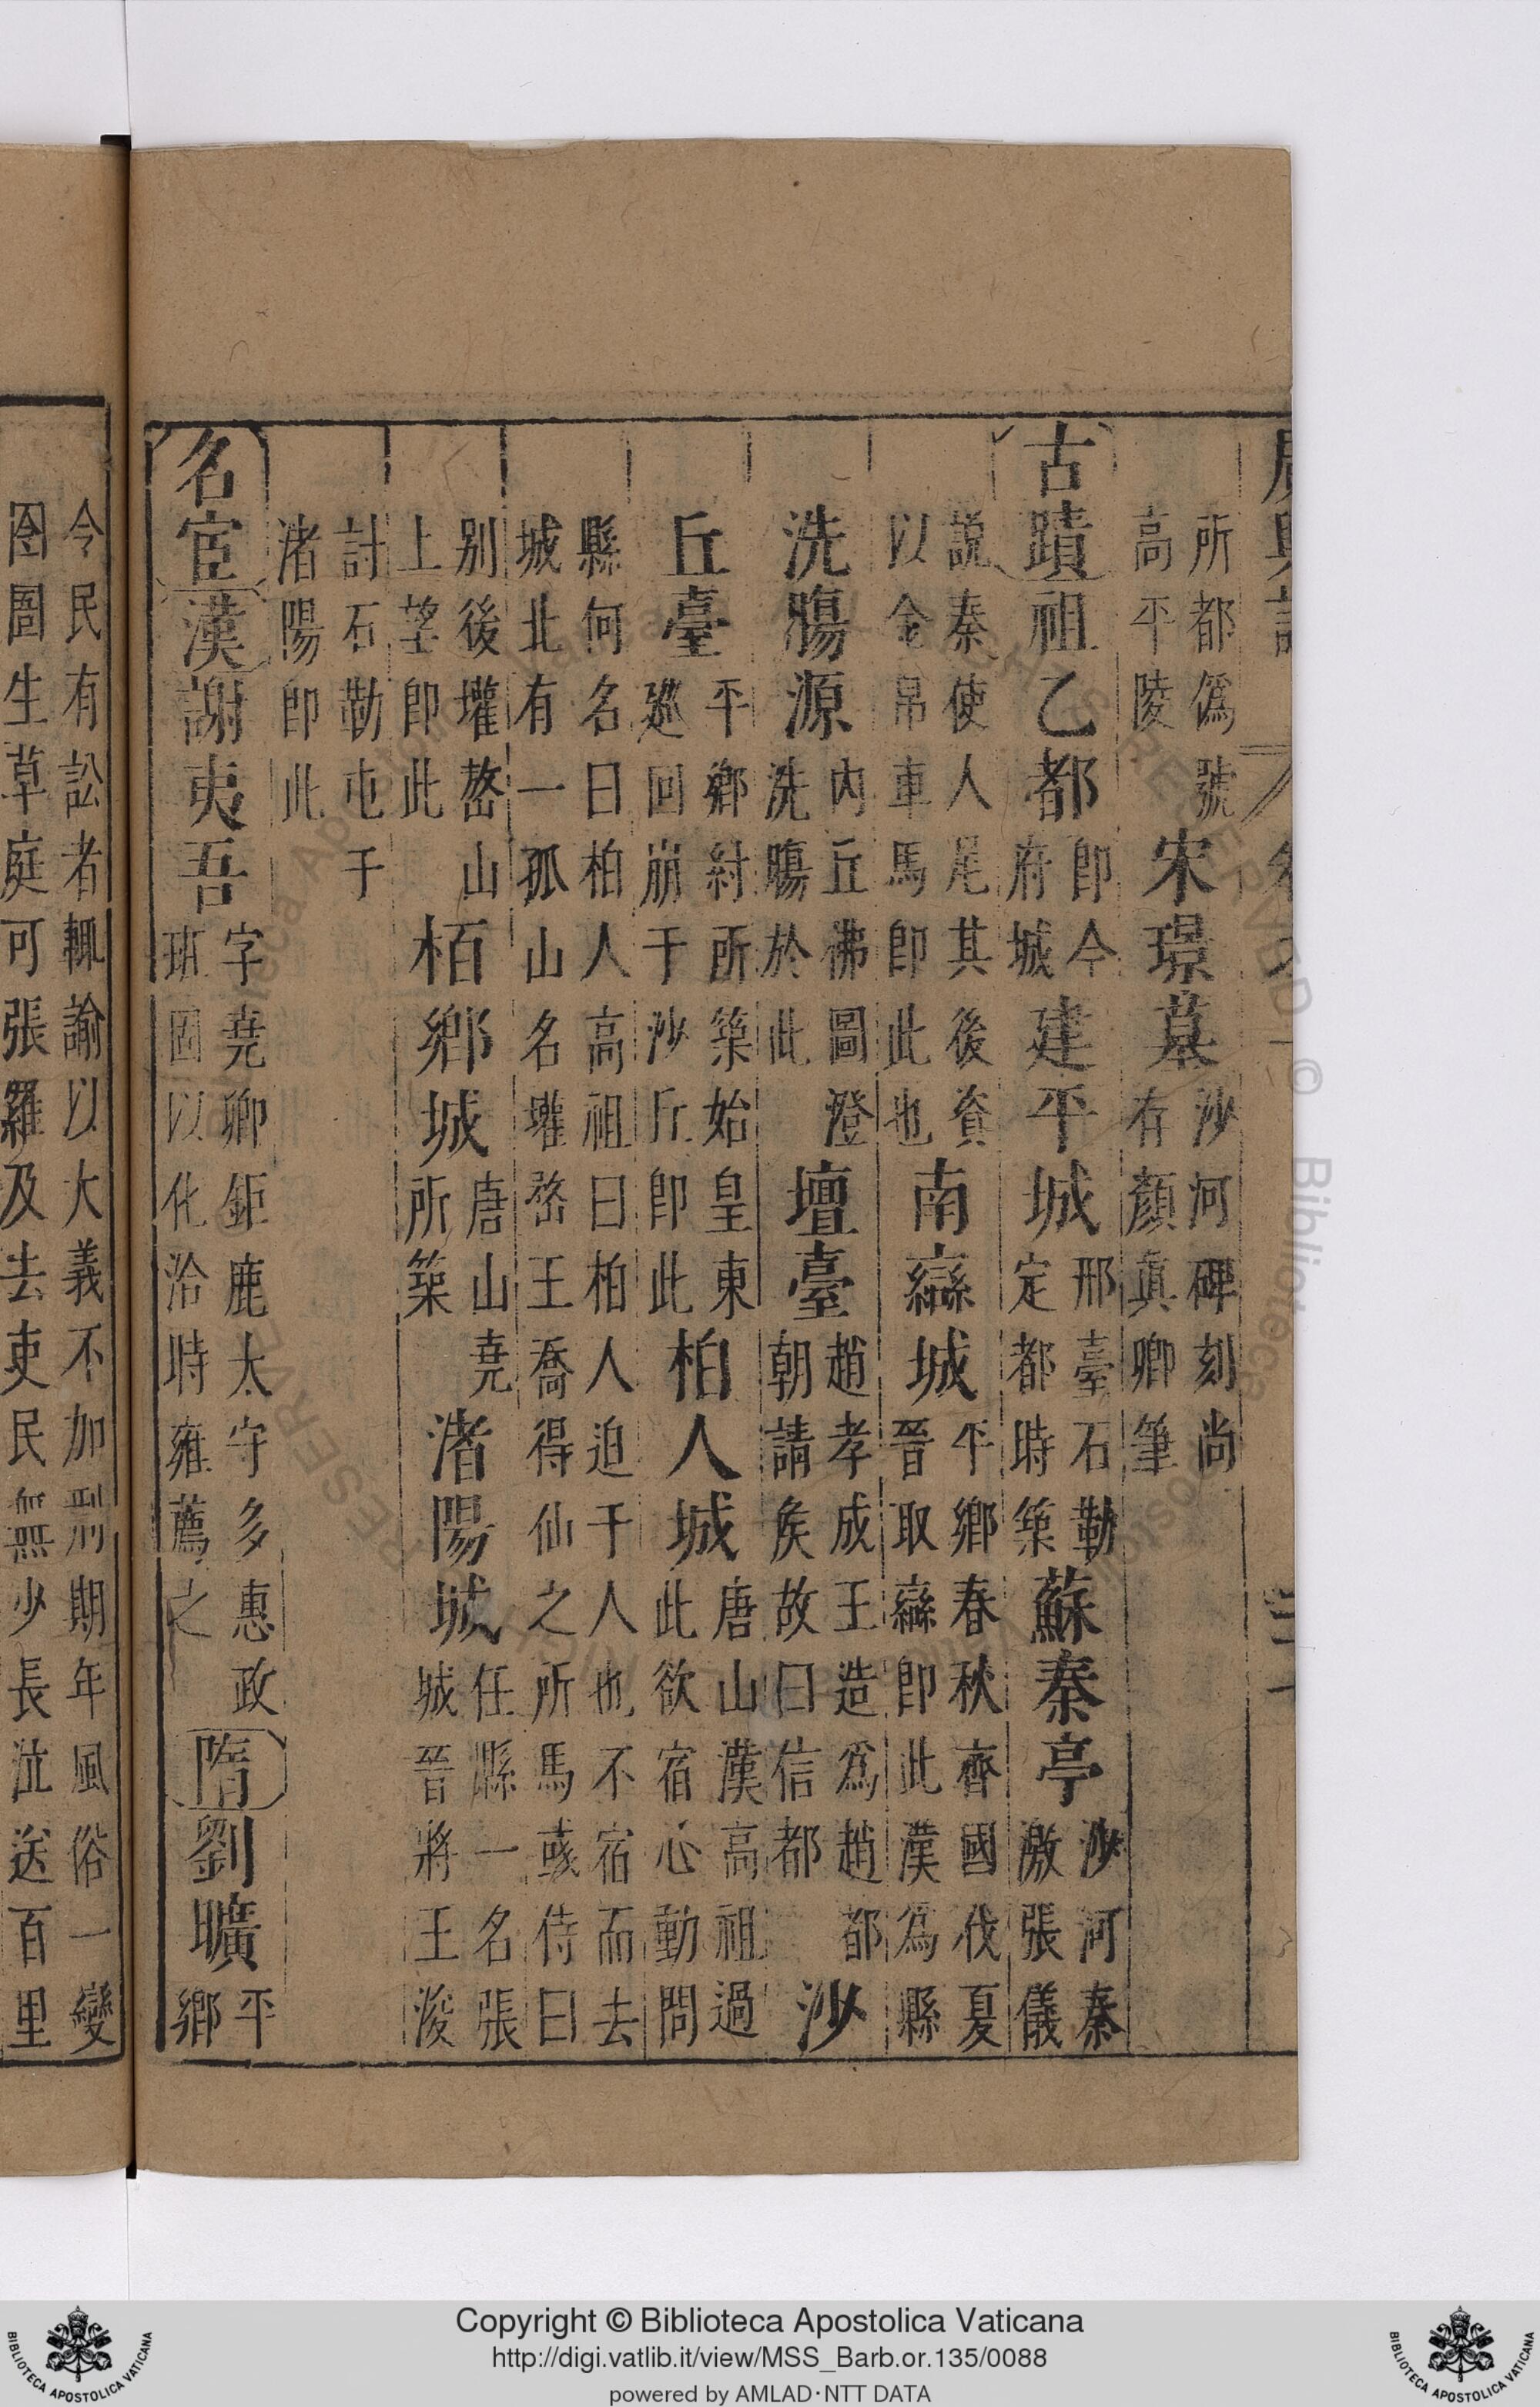 所都爲號高平陵宋璟墓沙河碑刻尚存顏真卿筆
古蹟祖乙都即今府城建平城邢臺石勒定都時築蘇秦亭沙河秦激張儀
說秦使人尾其後資以金帛車馬即此也南䜌城平鄉春秋齊國伐夏晉取䜌即此漢爲縣
洗腸源內丘佛圖澄洗腸於此壇臺趙孝成王造爲趙都朝請矦故曰信都沙
丘臺平鄉紂所築始皇東廵回崩于沙丘即此柏人城唐山漢高祖過此欲宿心動問
縣何名曰柏人高祖曰柏人迫于人也不宿而去城北有一孤山名巏嵍王喬得仙之所馬彧侍曰
别後巏嵍山上望即此栢鄉城唐山堯所築渚陽城任縣一名張城晉將王浚
討石勒屯于渚陽即此
名宦漢謝夷吾字堯卿鉅鹿太守多惠政班固以化洽時雍薦之隋劉曠平鄉
令民有訟者輒諭以大義不加刑期年風俗一變
囹圄生草庭可張羅及去吏民無少長泣送百里
Copyright © Biblioteca Apostolica Vaticana
http://digi.vatlib.it/view/MSS_Barb.or.135/0088
powered by AMLAD·NTT DATA